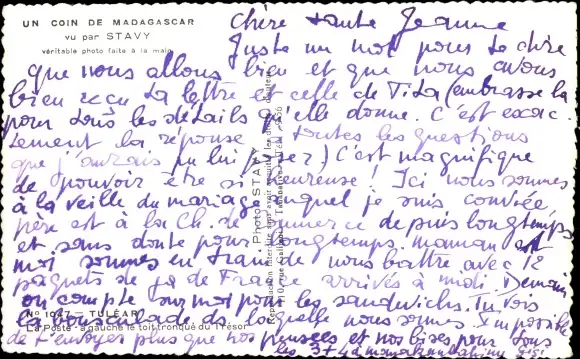 UN COIN DE MADAGASCAR
vu par STAVY
véritable photo faite à la main
Chère tante Jeanne
Juste un mot pour te dire
que nous allons bien et que nous avons
bien reçu ta lettre et celle de Tita (embrasse la
pour tous les détails qu'elle donne. C'est exac-
tement la réponse à toutes les questions
que j'aurais pu lui poser) C'est magnifique
de pouvoir être si heureuse ! Ici nous sommes
à la veille du mariage auquel je suis conviée
père est à la Ch. de Commerce depuis longtemps
et sans doute pour longtemps. maman et
moi sommes en train de nous battre avec 12
paquets de de France arrivés à midi. Demain
on compte sur moi pour les sandwichs. Tu vois
la bousculade ds laquelle nous sommes. Impossible
de t'envoyer plus que nos pensées et nos bises pour tous
les 3 +
Photo STAVY
Reproduction interdite sans avoir acquitté les droits
N° 1047 - TULÉAR
La Poste - à gauche le toit tronqué du Trésor